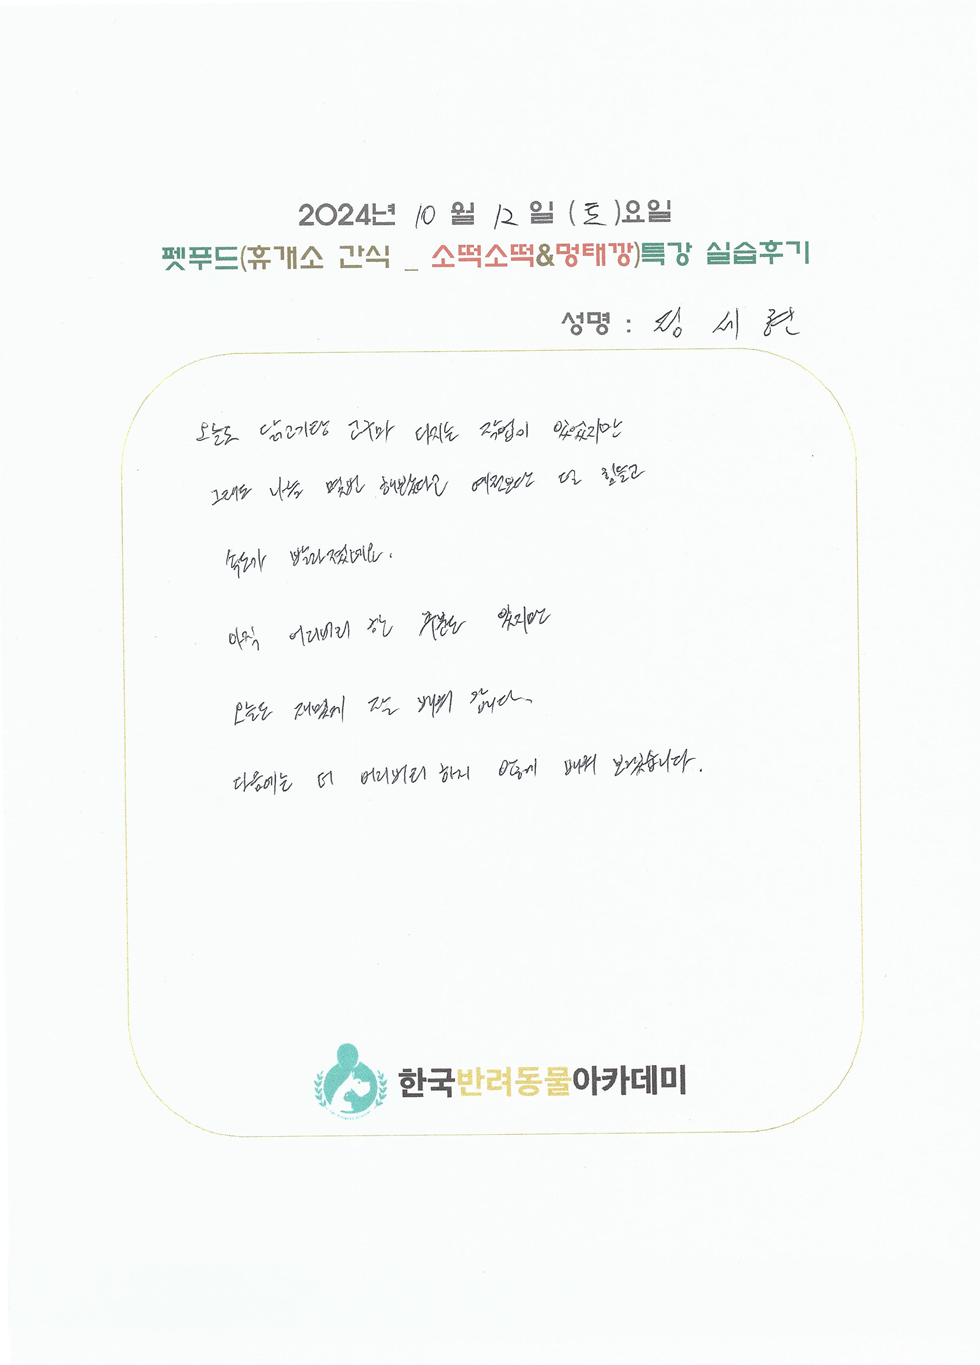 2024년 10 월 12 일 (토)요일
펫푸드(휴개소 간식 _ 소떡소떡&명태깡)특강 실습후기
성명 : 장 세 련
오늘도 닭고기랑 고구마 다지는 작업이 있었지만
그래도 나름 몇번 해봤다고 예전보다 덜 힘들고
속도가 빨라졌네요.
아직 어리버리 한 부분도 있지만
오늘도 재밌게 잘 배워 갑니다.
다음에는 더 어리버리 하지 않게 배워 보겠습니다.
한국반려동물아카데미